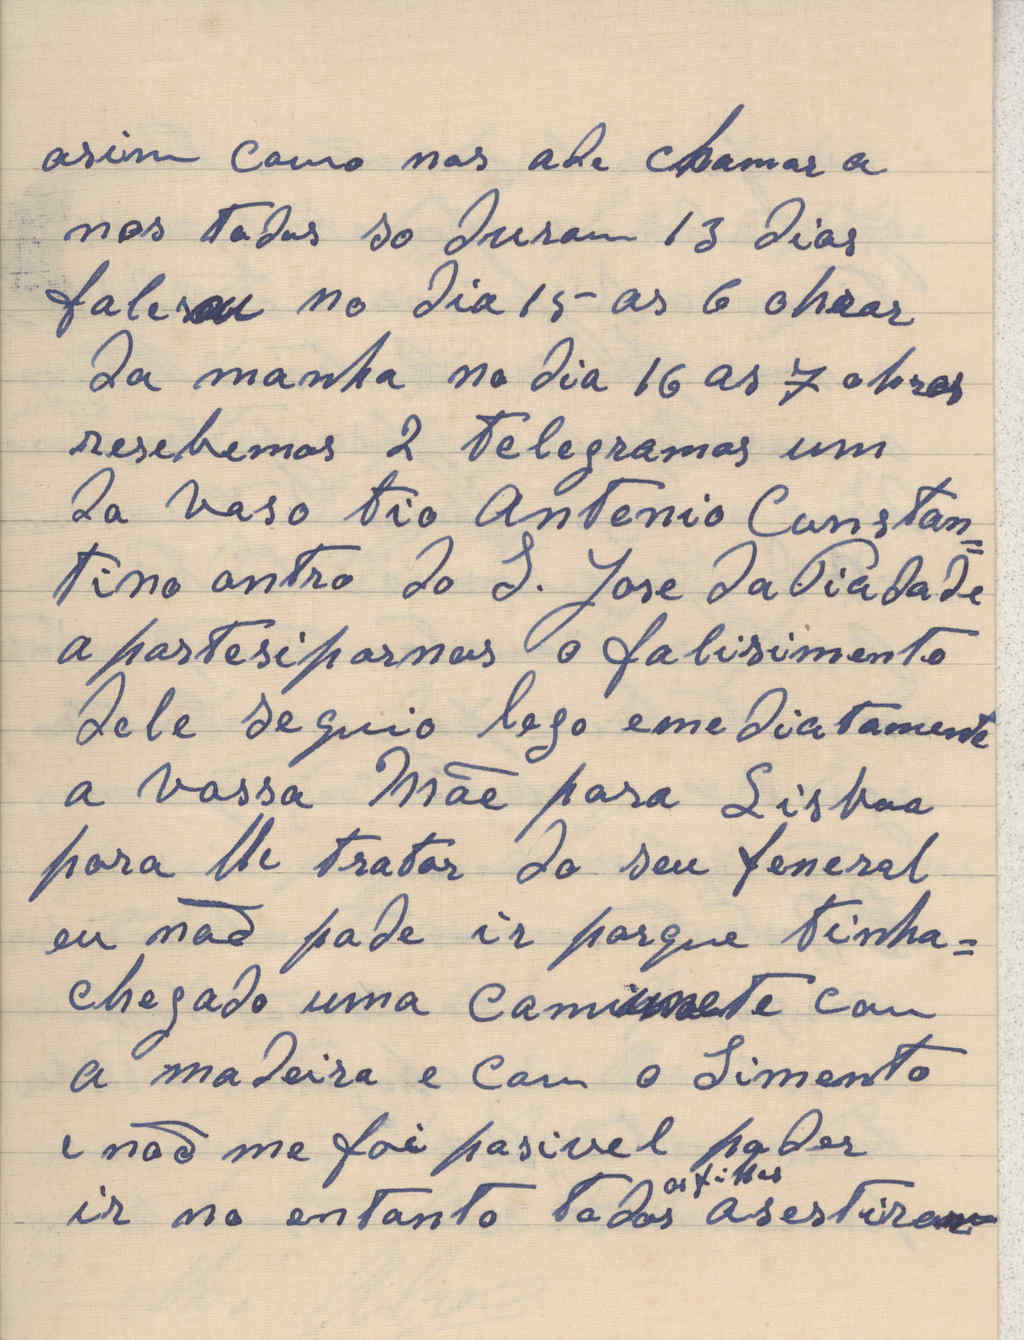 asim como nos ade chamar a
nos todos so duram 13 dias
faleseu no dia 15 as 6 ohras
da manha no dia 16 as 7 ohras
resebemos 2 telegramas um
do vaso tio Antonio Constan=
tino outro do S. Jose da Piadade
a partesiparnos o falisimento
dele seguio logo emediatamente
a vossa Mãe para Lisboa
para lhe tratar do seu feneral
eu não pode ir porque tinha=
chegado uma camiunete com
a madeira e com o Simento
e não me foi pasivel poder
os filhos
ir no entanto todos asestiram